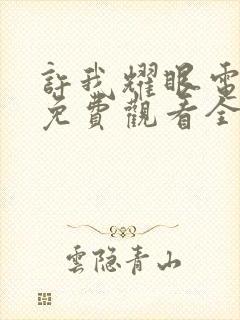 許我耀眼電
免費觀看全
雲隐青山